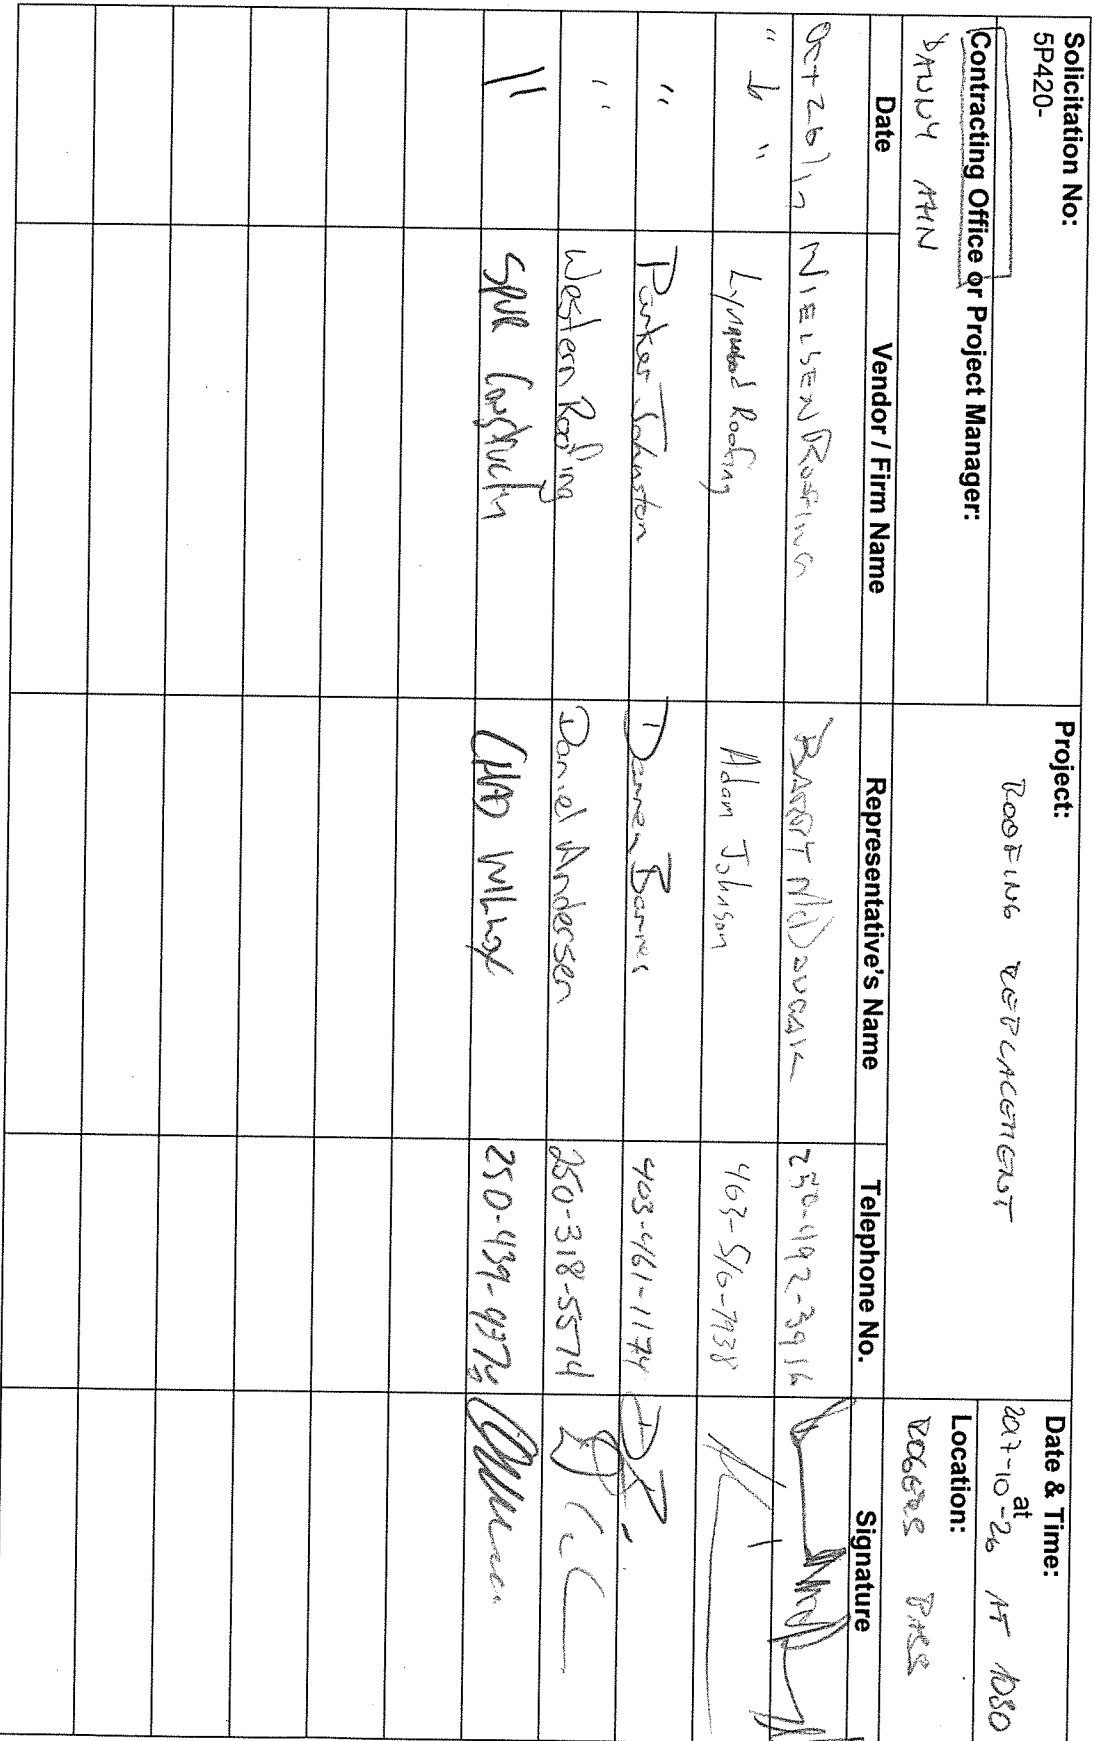 Solicitation No:
5P420-
Project:
ROOFING REPLACEMENT
Date & Time:
at
2017-10-26 AT 1030
Contracting Office or Project Manager:
DANNY AHN
Location:
ROGERS PASS
Date Vendor / Firm Name Representative's Name Telephone No. Signature
Oct 26/17 NIELSEN ROOFING 250-492-3916
" " Roofing Adam Johnson 403-510-7938
" Parker Johnston Darren Barnes 403-461-1174
" Western Roofing Daniel Andersen 250-318-5574
" CHAD 250-439-9774